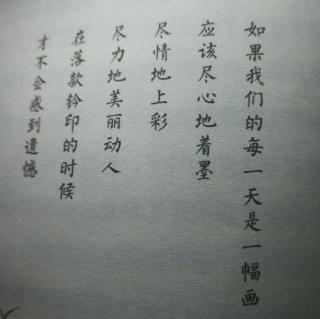 如果我们的每一天是一幅画
应该尽心地着墨
尽情地上彩
尽力地美丽动人
在落款钤印的时候
才不会感到遗憾